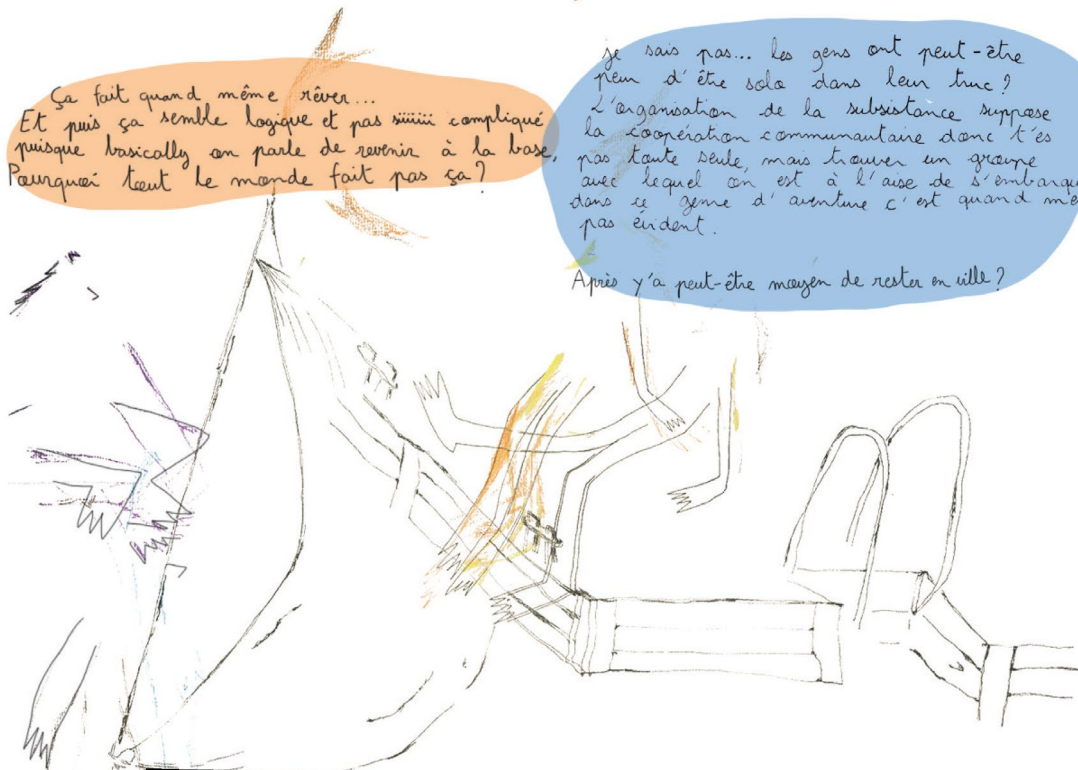 Ça fait quand même rêver...
Et puis ça semble logique et pas siiiiii compliqué
puisque basically on parle de revenir à la base,
Pourquoi tout le monde fait pas ça ?
je sais pas... les gens ont peut-être
peur d'être solo dans leur truc ?
L'organisation de la subsistance suppose
la coopération communautaire donc t'es
pas toute seule, mais trouver un groupe
avec lequel on est à l'aise de s'embarqu
dans ce genre d'aventure c'est quand mê
pas évident.
Après y'a peut-être moyen de rester en ville ?